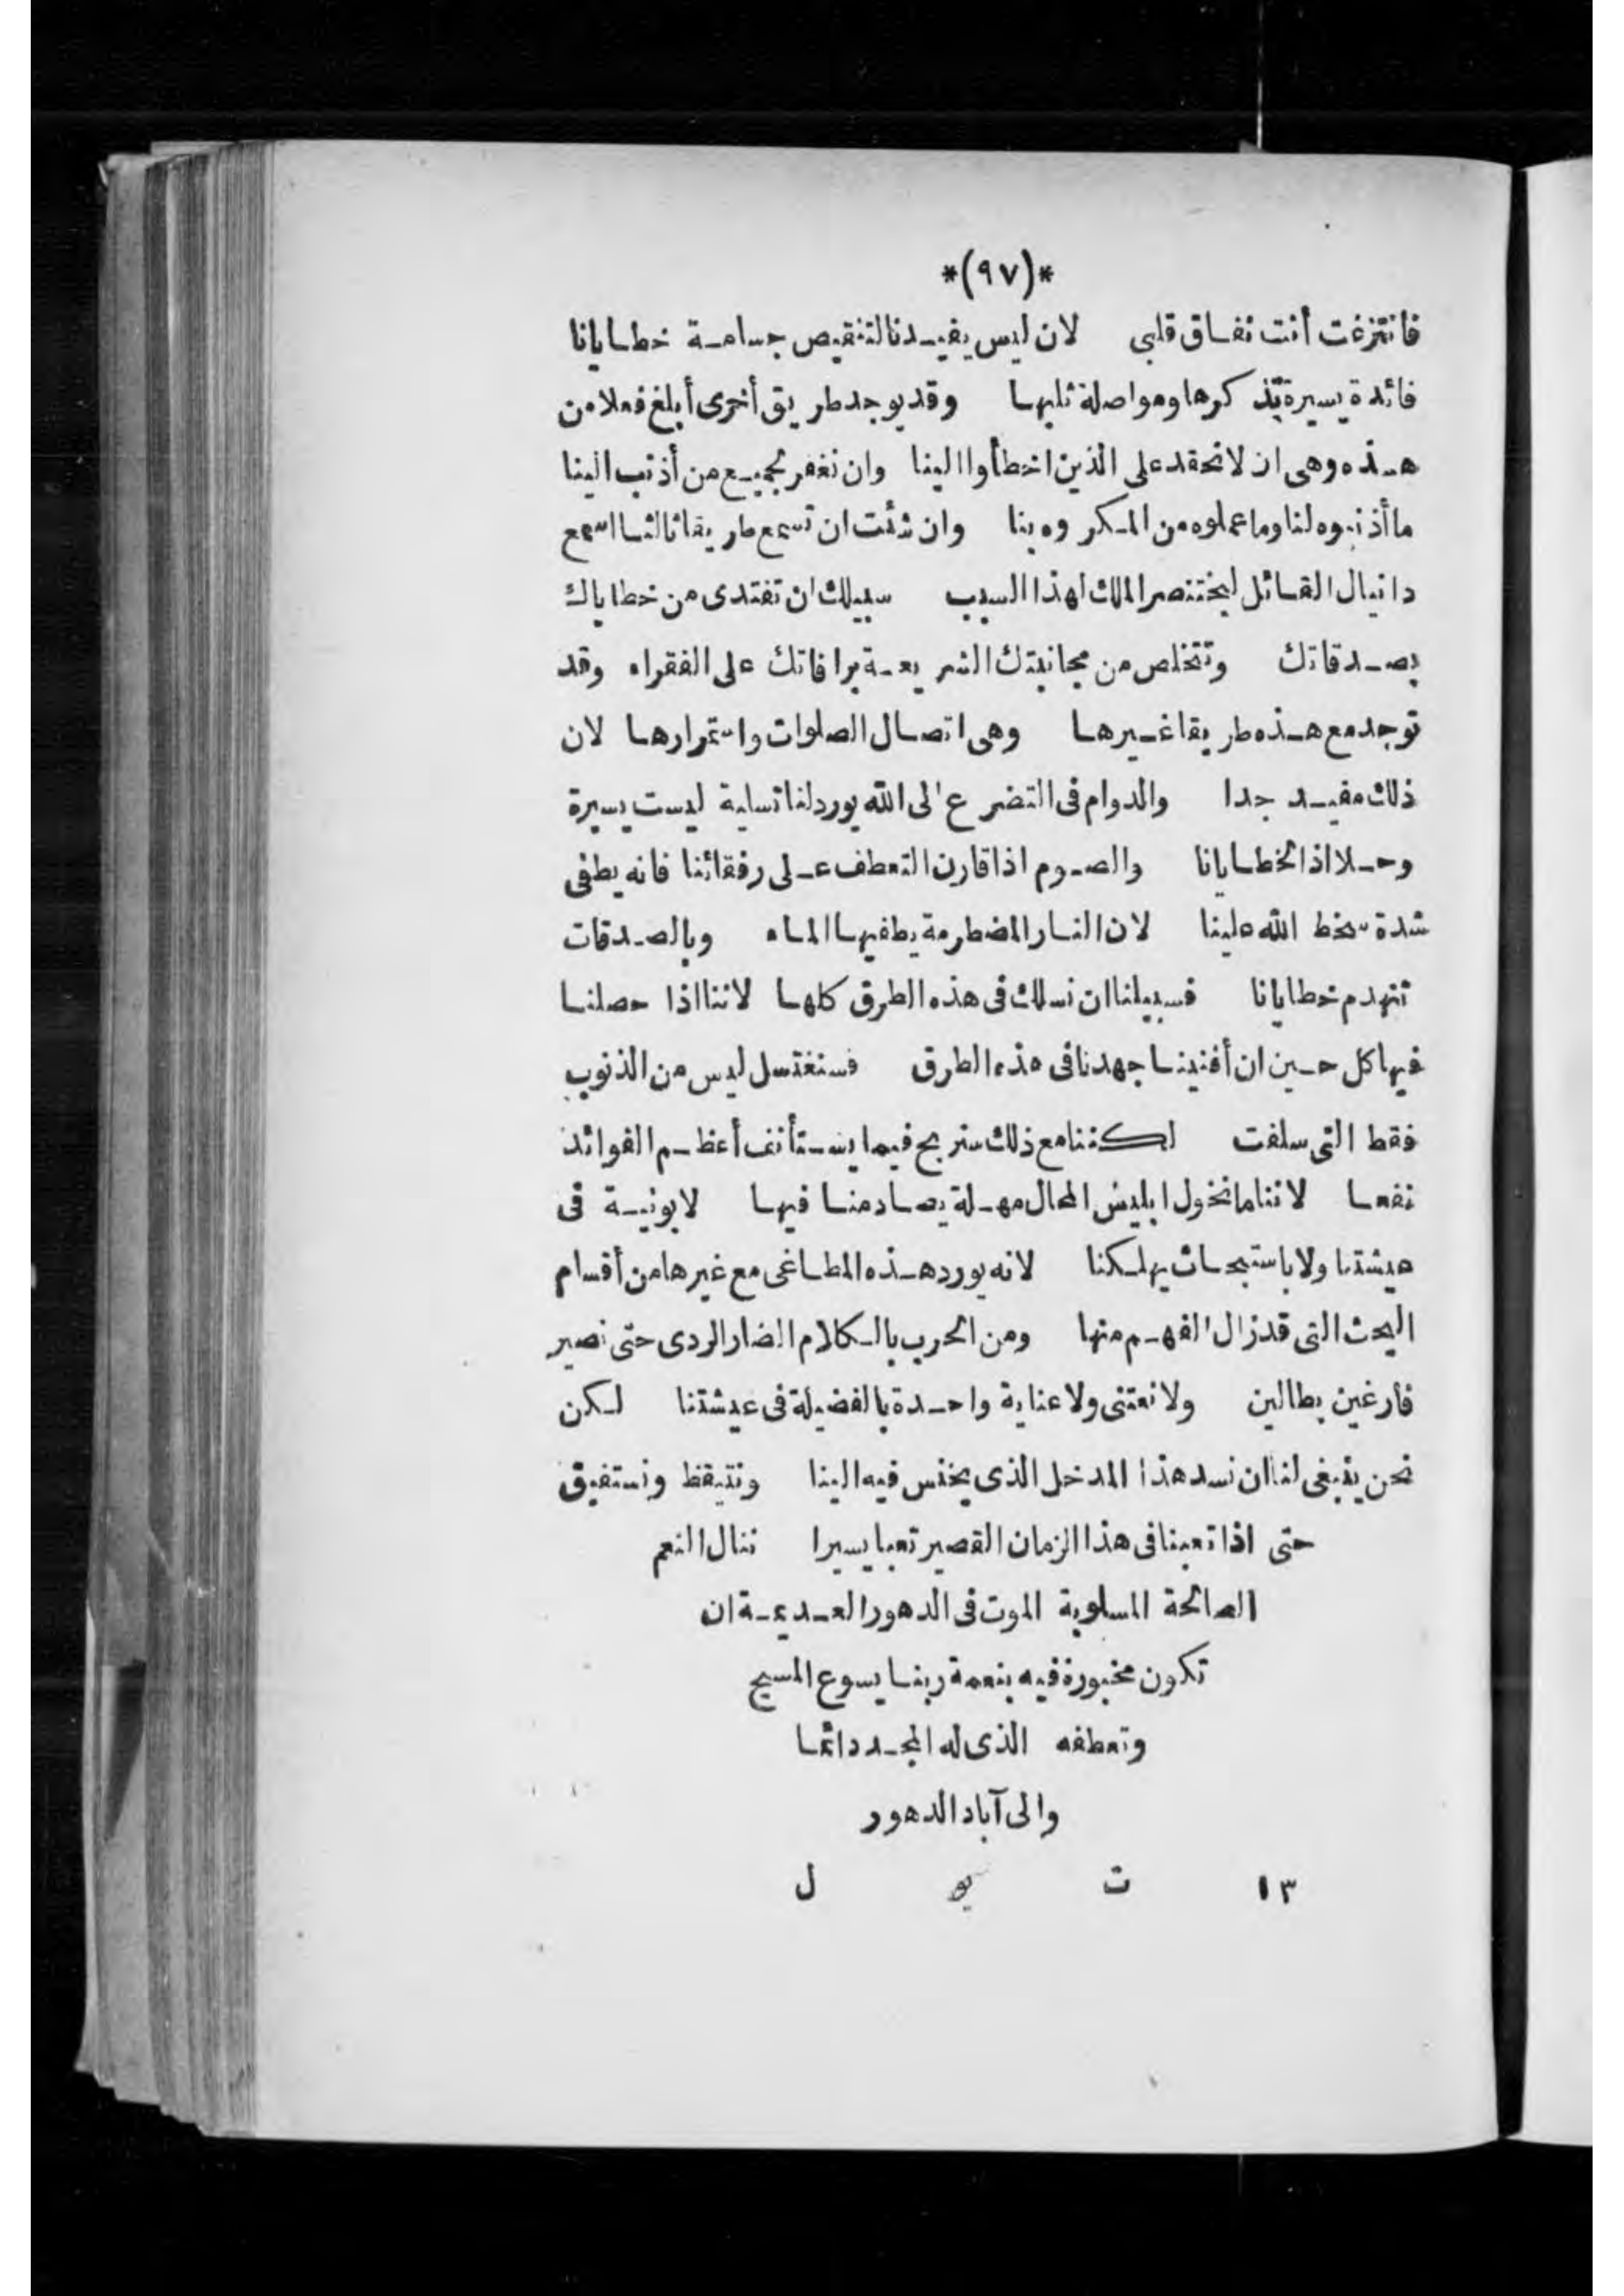 *(٩٧)*
فانتزغت أنت نفاق قلبى لان ليس يفيدنا لتنقيص جسامة خطايانا
فائدة يسيرة تذكرها ومواصلة ثلبها وقد يوجد طريق أخرى أبلغ فعلا من
هذه وهى ان لا نحقد على الذين اخطأوا الينا وان نغفر لجميع من أذنب الينا
ما أذنبوه لنا وما عملوه من المكروه بنا وان شئت ان تسمع طريقا ثالثا اسمع
دانيال القائل لبختنصر الملك لهذا السبب سبيلك ان تفتدى من خطاياك
بصدقاتك وتتخلص من مجانبتك الشريعة برافاتك على الفقراء وقد
توجد مع هذه طريقا غيرها وهى اتصال الصلوات واستمرارها لان
ذلك مفيد جدا والدوام فى التضرع الى الله يورد لنا تسلية ليست يسيرة
وحلا اذا لخطايانا والصوم اذا قارن التعطف على رفقائنا فانه يطفى
شدة سخط الله علينا لان النار المضطرمة يطفيها الماء وبالصدقات
تنهدم خطايانا فسبيلنا ان نسلك فى هذه الطرق كلها لاننا اذا حصلنا
فيها كل حين ان أفنينا جهدنا فى هذه الطرق فسنغتسل ليس من الذنوب
فقط التى سلفت لكننا مع ذلك سنربح فيما يستأنف أعظم الفوائد
نفعا لاننا ما نخول ابليس المحال مهلة يصادمنا فيها لا بونية فى
عيشتنا ولا باستبحاث يهلكنا لانه يورد هذه المطاغى مع غيرها من أقسام
البحث التى قد زال الفهم منها ومن الحرب بالكلام الضار الردى حتى نصير
فارغين بطالين ولا نعتنى ولا عناية واحدة بالفضيلة فى عيشتنا لكن
نحن ينبغى لنا ان نسد هذا المدخل الذى يخنس فيه الينا ونتيقظ ونستفيق
حتى اذا تعبنا فى هذا الزمان القصير تعبا يسيرا ننال النعم
الصالحة المسلوبة الموت فى الدهور العديمة ان
تكون مخبورة فيه بنعمة ربنا يسوع المسيح
وتعطفه الذى له المجد دائما
والى آباد الدهور
١٣ ت يو ل